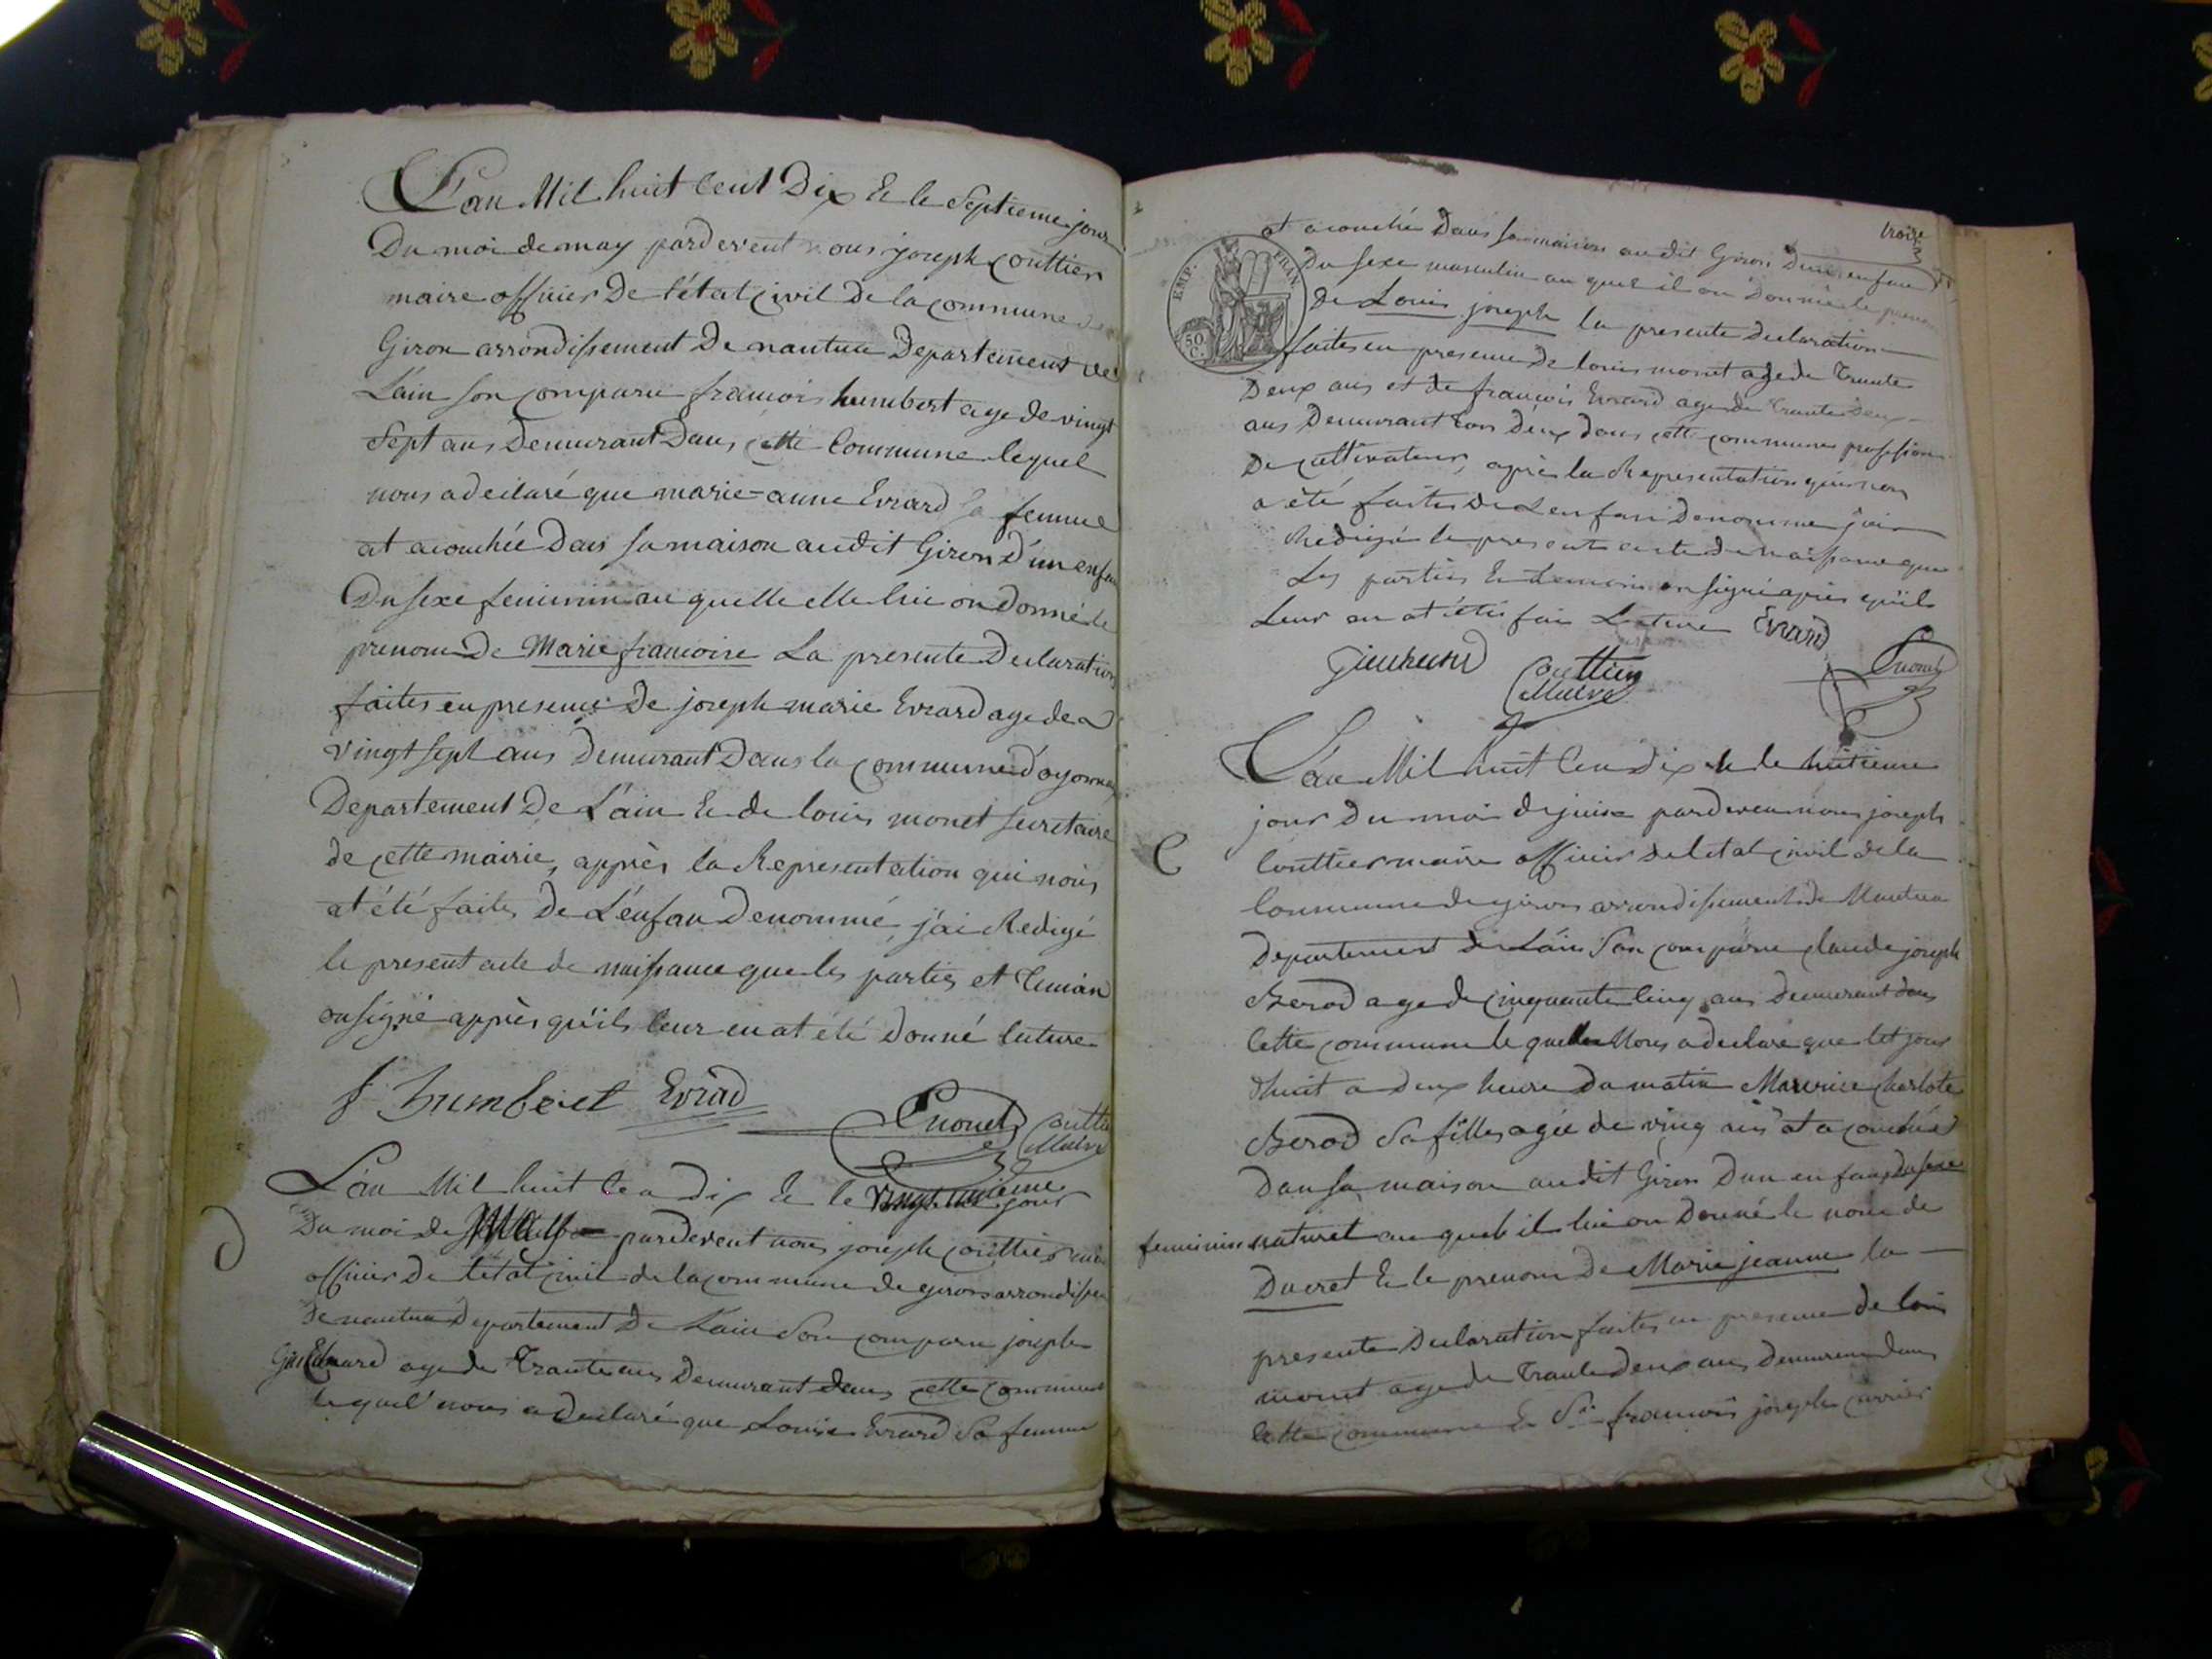 L'an Mil huit Cent Dix & le Septieme jour
Du moi de may pardevent nous joseph Couttier
maire officier De l'état Civil De la Commune de
Giron arrondissement De nantua Departement de
L'ain son Comparu francois humbert age de vingt
Sept ans Demurant Dans Cette Commune lequel
nous a declaré que marie=anne Evrard Sa femme
at acouchée Dans sa maison au dit Giron D'un enfan
Du sexe feminin au quelle elle lui on Donné le
prenom De Marie francoise La presente Declaration
faites en presence De joseph marie Evrard age de
vingt sept ans Demurant Dans la Commune d'oyonna
Departement De L'ain & de louis monet secretaire
de Cette mairie, apprès la Representation qui nous
at été faites De L'enfan Denommé, j'ai Redigé
le present acte de naissance que les parties et Temoin
on signé apprès qu'il leur en at été Donné luture
f humbert Evrad
Monet Couttier
Maire
L'an Mil huit Cen Dix & le vingt unieme jour
Du moi de May pardevent nous joseph Couttier mair
officier De l'état Civil de la Commune de giron arrondissem
De nantua Departement De L'ain Son Comparu joseph
age de Trante ans Demurant dans Cette Commune
lequel nous a Declaré que Louise Evrard Sa femme
troize
3
at acouchée Dans sa maison au dit Giron D'un enfan
EMP. FRAN.
50 C.
Du sexe masculin au quel il on Donné le prenom
De Louis joseph la presente Declaration
faites en presence De louis monet age de Trante
Deux ans et de françois Evrard age de Trante Deux
ans Demurant Tous Deux dans Cette Commune profession
De Cultivateur, après la Representation qui nous
a été faites De L'enfan Denommé j'ai
Redigé le present acte de naissance que
Les parties & Temoin on signé après qu'il
Leur en at été fai Luture Evrard
Couttier Monet
Maire
L'an Mil huit Cen Dix & le huitieme
jour Du moi de juin pardeven nous joseph
Couttier maire officier de l'etat Civil de la
Commune de giron arrondissement de Nantua
Departement de L'ain Son Comparu Claude joseph
Berod age de Cinquante Cinq ans Demurant dans
Cette Commune le quelle Nous a declaré que Cet jour
d'huit a Deux heure Du matin Maurice Charlote
Berod Sa fille agée de ving at acouchée
Dan sa maison au dit Giron D'un enfan du sexe
feminin naturel au quel il lui on Donné le nom de
Ducret & le prenom De Marie jeanne la
presente Declaration faites en presence de loui
monet age de Trante deux ans Demurent dans
Cette Commune & Sr francois joseph Carrier